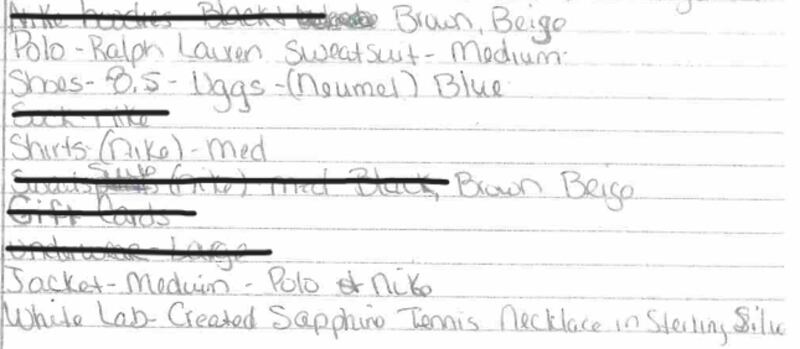 Nike hoodies Black Brown, Beige
Polo - Ralph Lauren Sweatsuit - Medium
Shoes - 8.5 - Uggs - (Neumel) Blue
Sock Nike
Shirts (Nike) - Med
(Nike) med Black, Brown Beige
Gift Cards
Underwear - Large
Jacket - Meduim - Polo Nike
White Lab - Created Sapphire Tennis Necklace in Sterling Silv